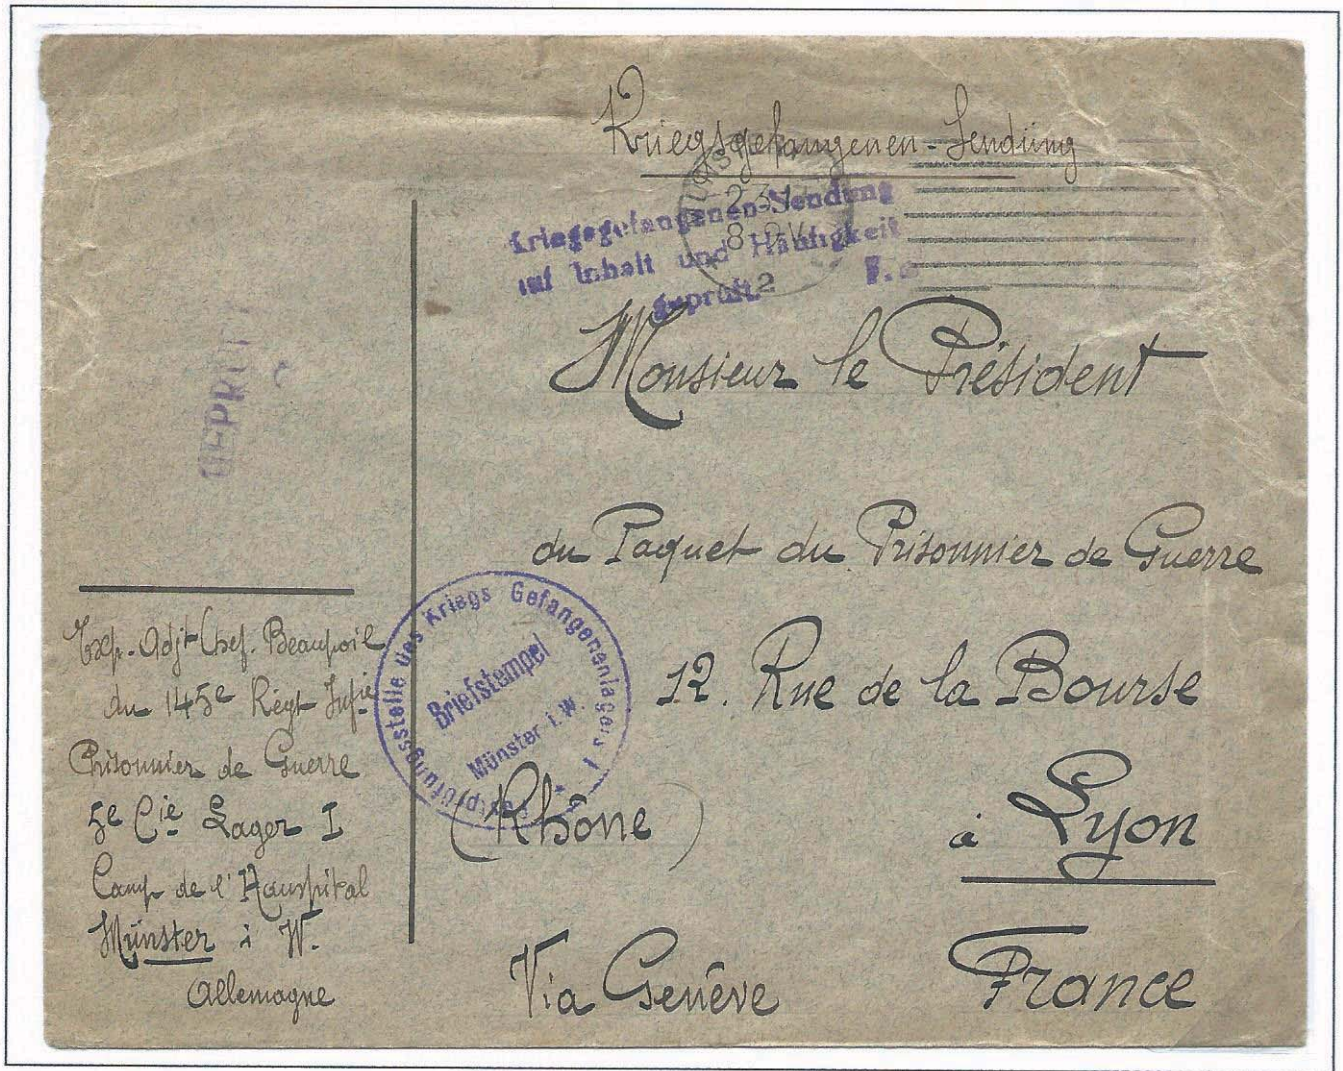 Kriegsgefangenen-Sendung
2 3
8-9V
2
Kriegsgefangenen-Sendung
auf Inhalt und Häufigkeit
geprüft. F.a
Monsieur le Président
du Paquet du Prisonnier de Guerre
12. Rue de la Bourse
(Rhône)
à Lyon
Via Genève
France
GEPRÜFT
Postprüfungsstelle des Kriegs Gefangenenlagers I
Briefstempel
Münster i. W.
Exp. Adjt Chef. Beaupoil
du 145e Régt Infie
Prisonnier de Guerre
5e Cie Lager I
Camp de l'Hauspital
Münster i W.
Allemagne